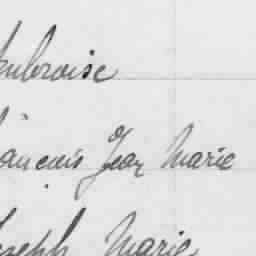 Ambroise
François Jean Marie
Joseph Marie